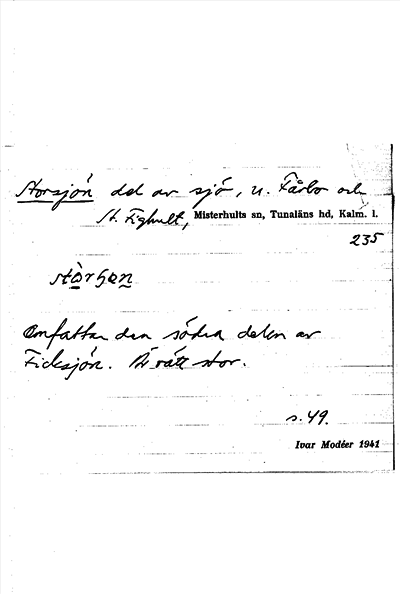 Storsjön del av sjö, u. Fårbo och
St. Fighult, Misterhults sn, Tunaläns hd, Kalm. l.
235
Omfattar den södra delen av
Ficksjön. Är rätt stor.
s. 49.
Ivar Modéer 1941